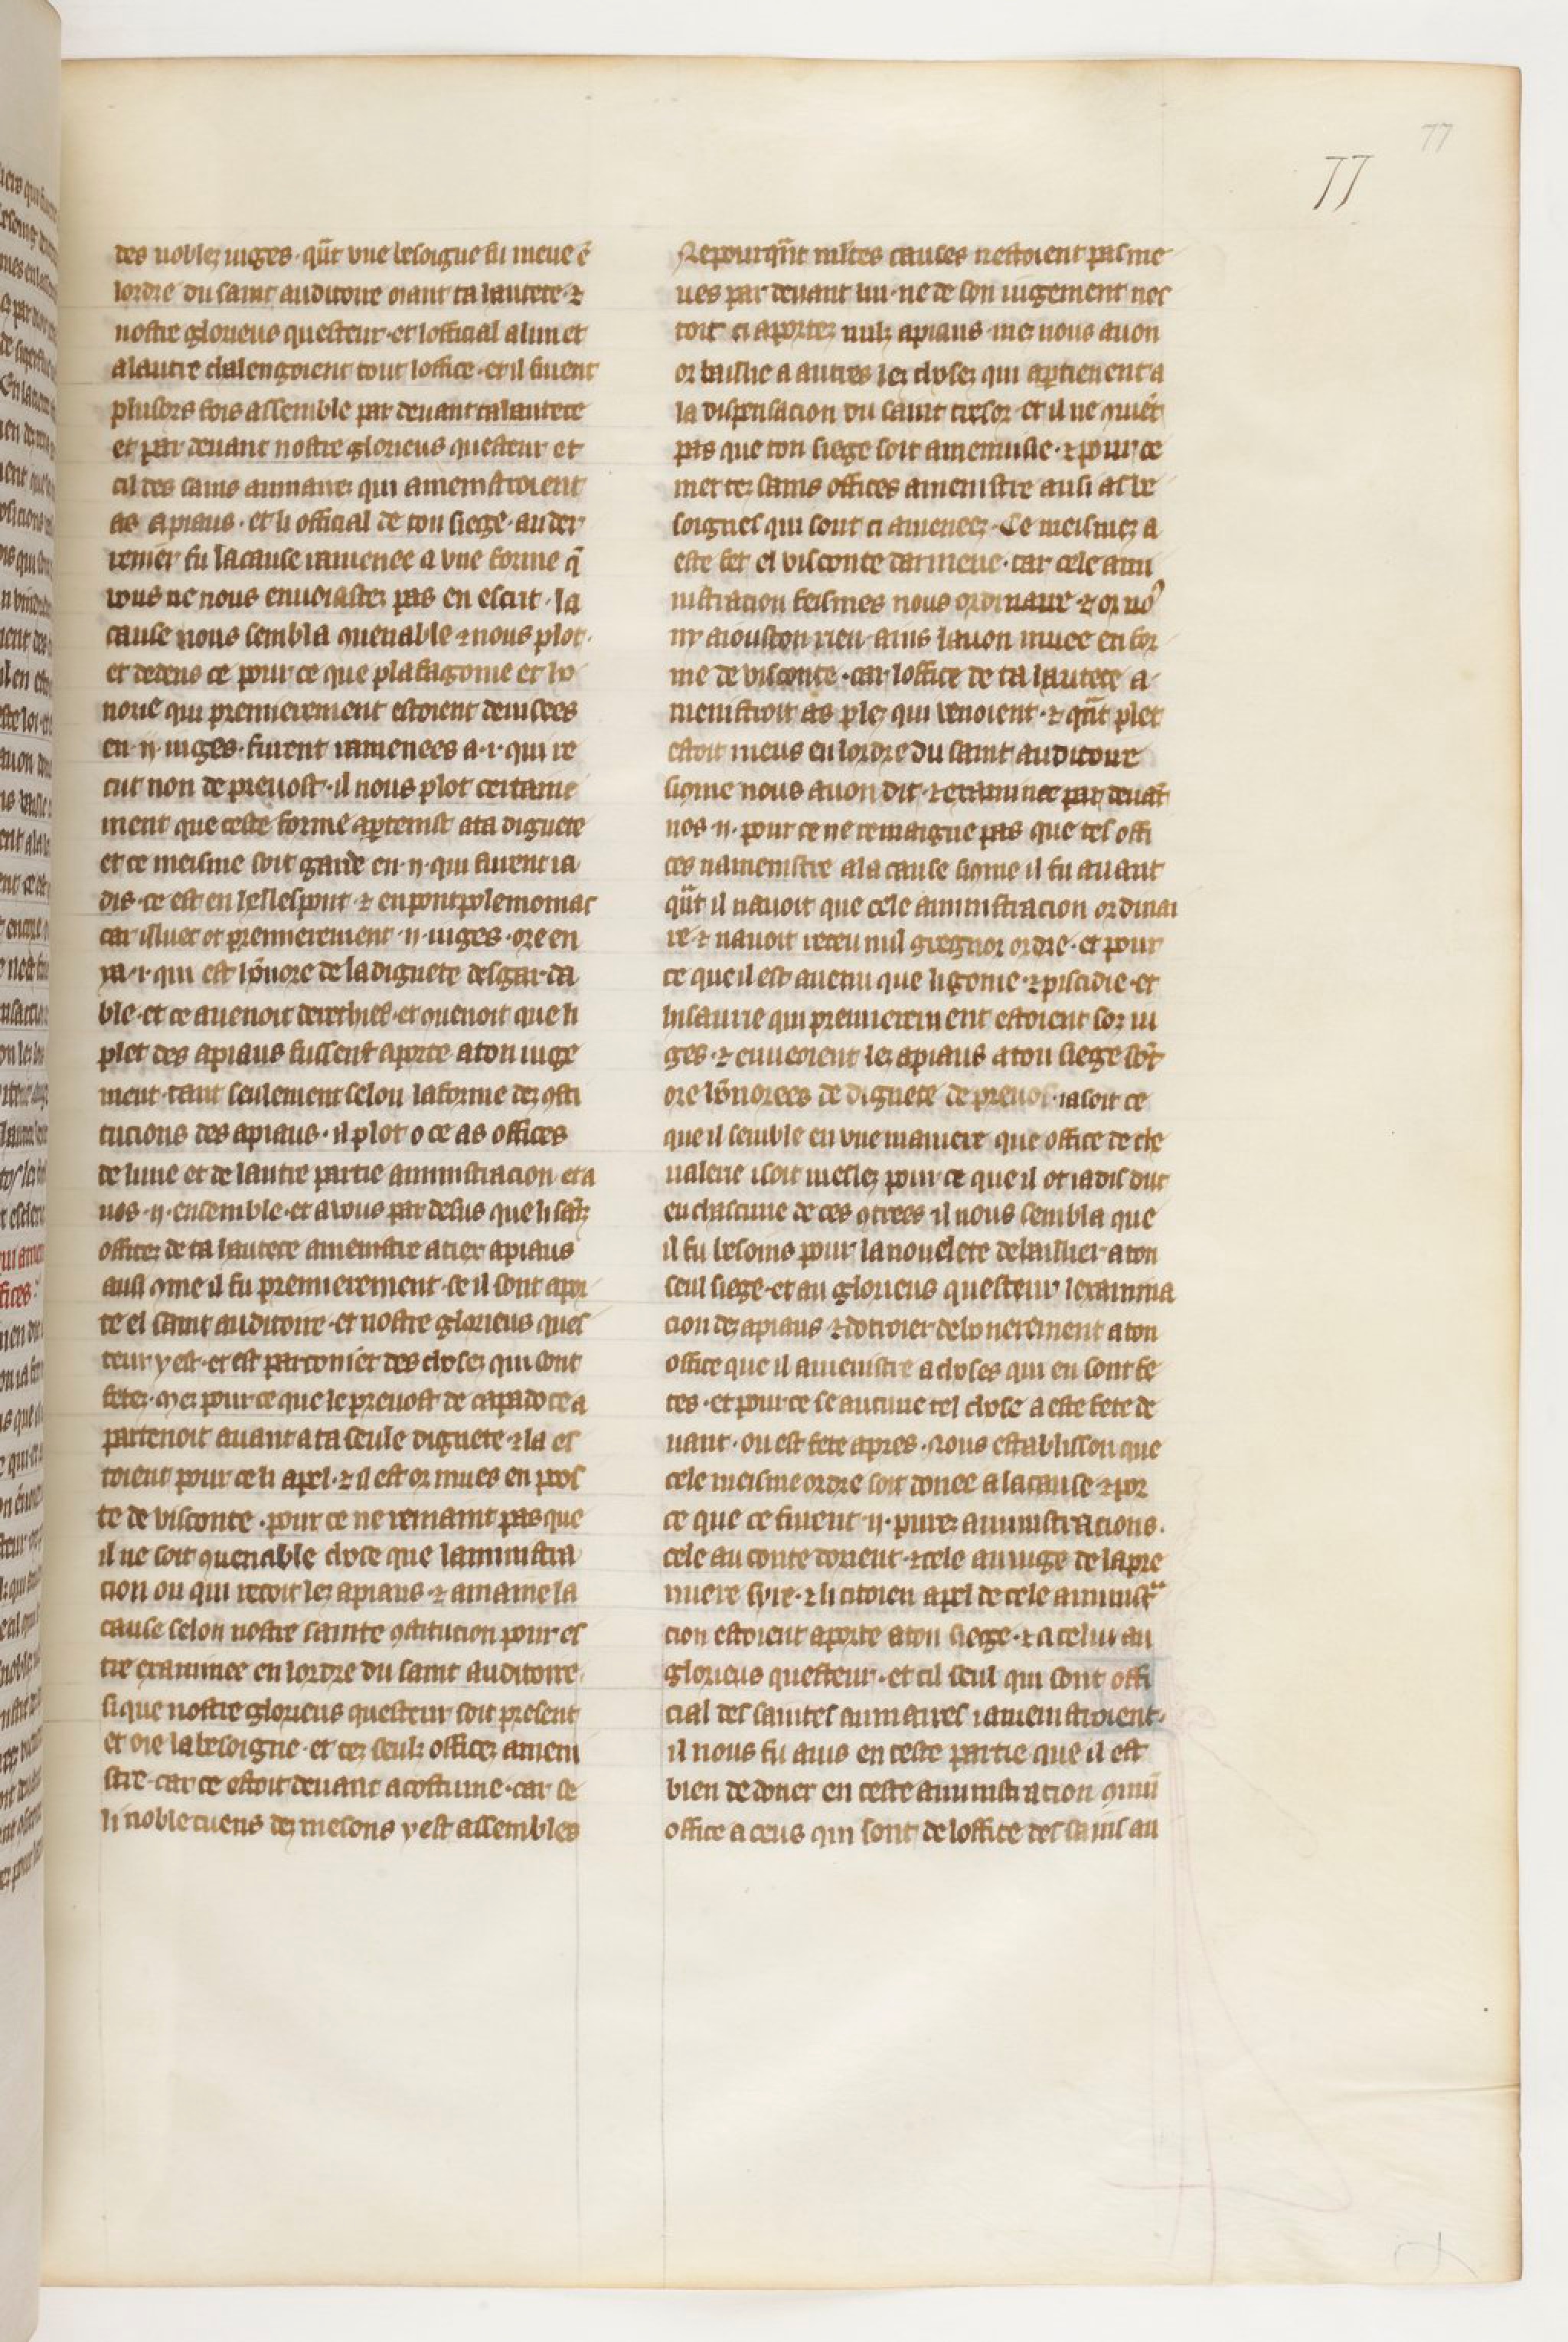 77
77
des nobles iuges · qũt vne besoigne fu meue ẽ
lordre du saint auditoire oiant ta hautece · ⁊
nostre glorieus questeur · et lofficial a lun et
a lautre chalengoient tout loffice · et il furent
plusors fois assemble par deuant ta hautece
et par deuant nostre glorieus questeur et
cil des sains aumaires qui amenistroient
as apiaus · et li official de ton siege · au der
renier fu la cause ramenee a vne forme q̃
vous ne nous enuoiastes pas en escrit · la
cause nous sembla ꝯuenable ⁊ nous plot ·
et dedens ce pour ce que plafagonie et ho
norie qui premierement estoient deuisees
en · ii · iuges · furent ramenees a · i · qui re
cut non de preuost · il nous plot certaine
ment que ceste forme aꝑtenist a ta dignete
et ce meisme soit garde en · ii · qui furent ia
dis · ce est en hellespont · ⁊ en pont polemoniac
car illuec ot premierement · ii · iuges · ore en
ya · i · qui est hõnore de la dignete desgarda
ble · et ce auenoit derechief · et ꝯuenoit que li
plet des apiaus fussent aporte a ton iuge
ment · tant seulement selon la forme dez ꝯsti
tucions des apiaus · il plot o ce as offices
de lune et de lautre partie aministracion et a
uos · ii · ensemble · et a vous par desus que li saĩz
officez de ta hautece amenistre a tiex apiaus
ausi ꝯme il fu premierement · se il sont apor
te el saint auditoire · et nostre glorieus ques
teur y est · et est parconier des choses qui sont
fetez · Mez pour ce que le preuost de capadoce a
partenoit auant a ta seule dignete · ⁊ la es
toient pour ce li apel · ⁊ il est or mues en pros
te de visconte · pour ce ne remaint pas que
il ne soit ꝯuenable chose que laministra
cion ou qui recoit lez apiaus · ⁊ amaine la
cause selon nostre sainte ꝯstitucion pour es
tre examinee en lordre du saint auditoire ·
si que nostre glorieus questeur soit present
et oie la besoigne · et cez seulz officez ameni
stre · car ce estoit deuant acostume · car se
li noble cuens dez mesons y est assembles
Nepourqũt mĩtes causes nestoient pas me
ues par deuant lui · ne de son iugement nes
toit ci aportez nulz apiaus · mez nous auon
or baillie a autres lez chosez qui aꝑtienent a
la dispensacion du saint tresor · et il ne ꝯuiẽt
pas que ton siege soit amenuisie · ⁊ pour ce
met tez sains offices amenistre ausi as be
soignes qui sont ci amenees · Ce meismez a
este fet el visconte darmenie · car cele ami
nistracion feismes nous ordinaire · ⁊ or no9
ny aiouston rien · ains lauon muee en for
me de visconte · car loffice de ta hautece a
menistroit as plez qui venoient · ⁊ qũt plet
estoit meus en lordre du saint auditoire
siꝯme nous auon dit · ⁊ examinee par deuãt
nos · ii · pour ce ne remaigne pas que tes offi
ces namenistre a la cause siꝯme il fu auant
qũt il nauoit que cele aministracion ordinai
re · ⁊ nauoit receu nul gregnor ordre · et pour
ce que il est auenu que ligonie · ⁊ piscidie · et
hisaurie qui premierement estoient soz iu
ges · ⁊ enueoient lez apiaus a ton siege sõt
ore hõnorees de dignete de preuos · ia soit ce
que il semble en vne maniere que office de che
ualerie i soit meslez pour ce que il ot iadis duc
en chascune de ces ꝯtrees il nous sembla que
il fu besoins pour la nouelete de baillier a ton
seul siege · et au glorieus questeur lexamina
cion dez apiaus ⁊ dotroier delonerement a ton
office que il amenistre a choses qui en sont fe
tes · et pour ce se aucune tel chose a este fete de
uant · ou est fete apres · Nous establisson que
cele meisme ordre soit donee a la cause · ⁊ por
ce que ce furent · ii · purez aministracions ·
cele au conte dorient · ⁊ cele au iuge de la pre
miere syre · ⁊ li citoien apel de cele aministra
cion estoient aporte a ton siege · ⁊ a celui au
glorieus questeur · et cil seul qui sont offi
cial des saintes aumaires i amenistroient ·
il nous fu auis en ceste partie que il est
bien de doner en ceste aministracion ꝯmũ
office a ceus qui sont de loffice des sains au